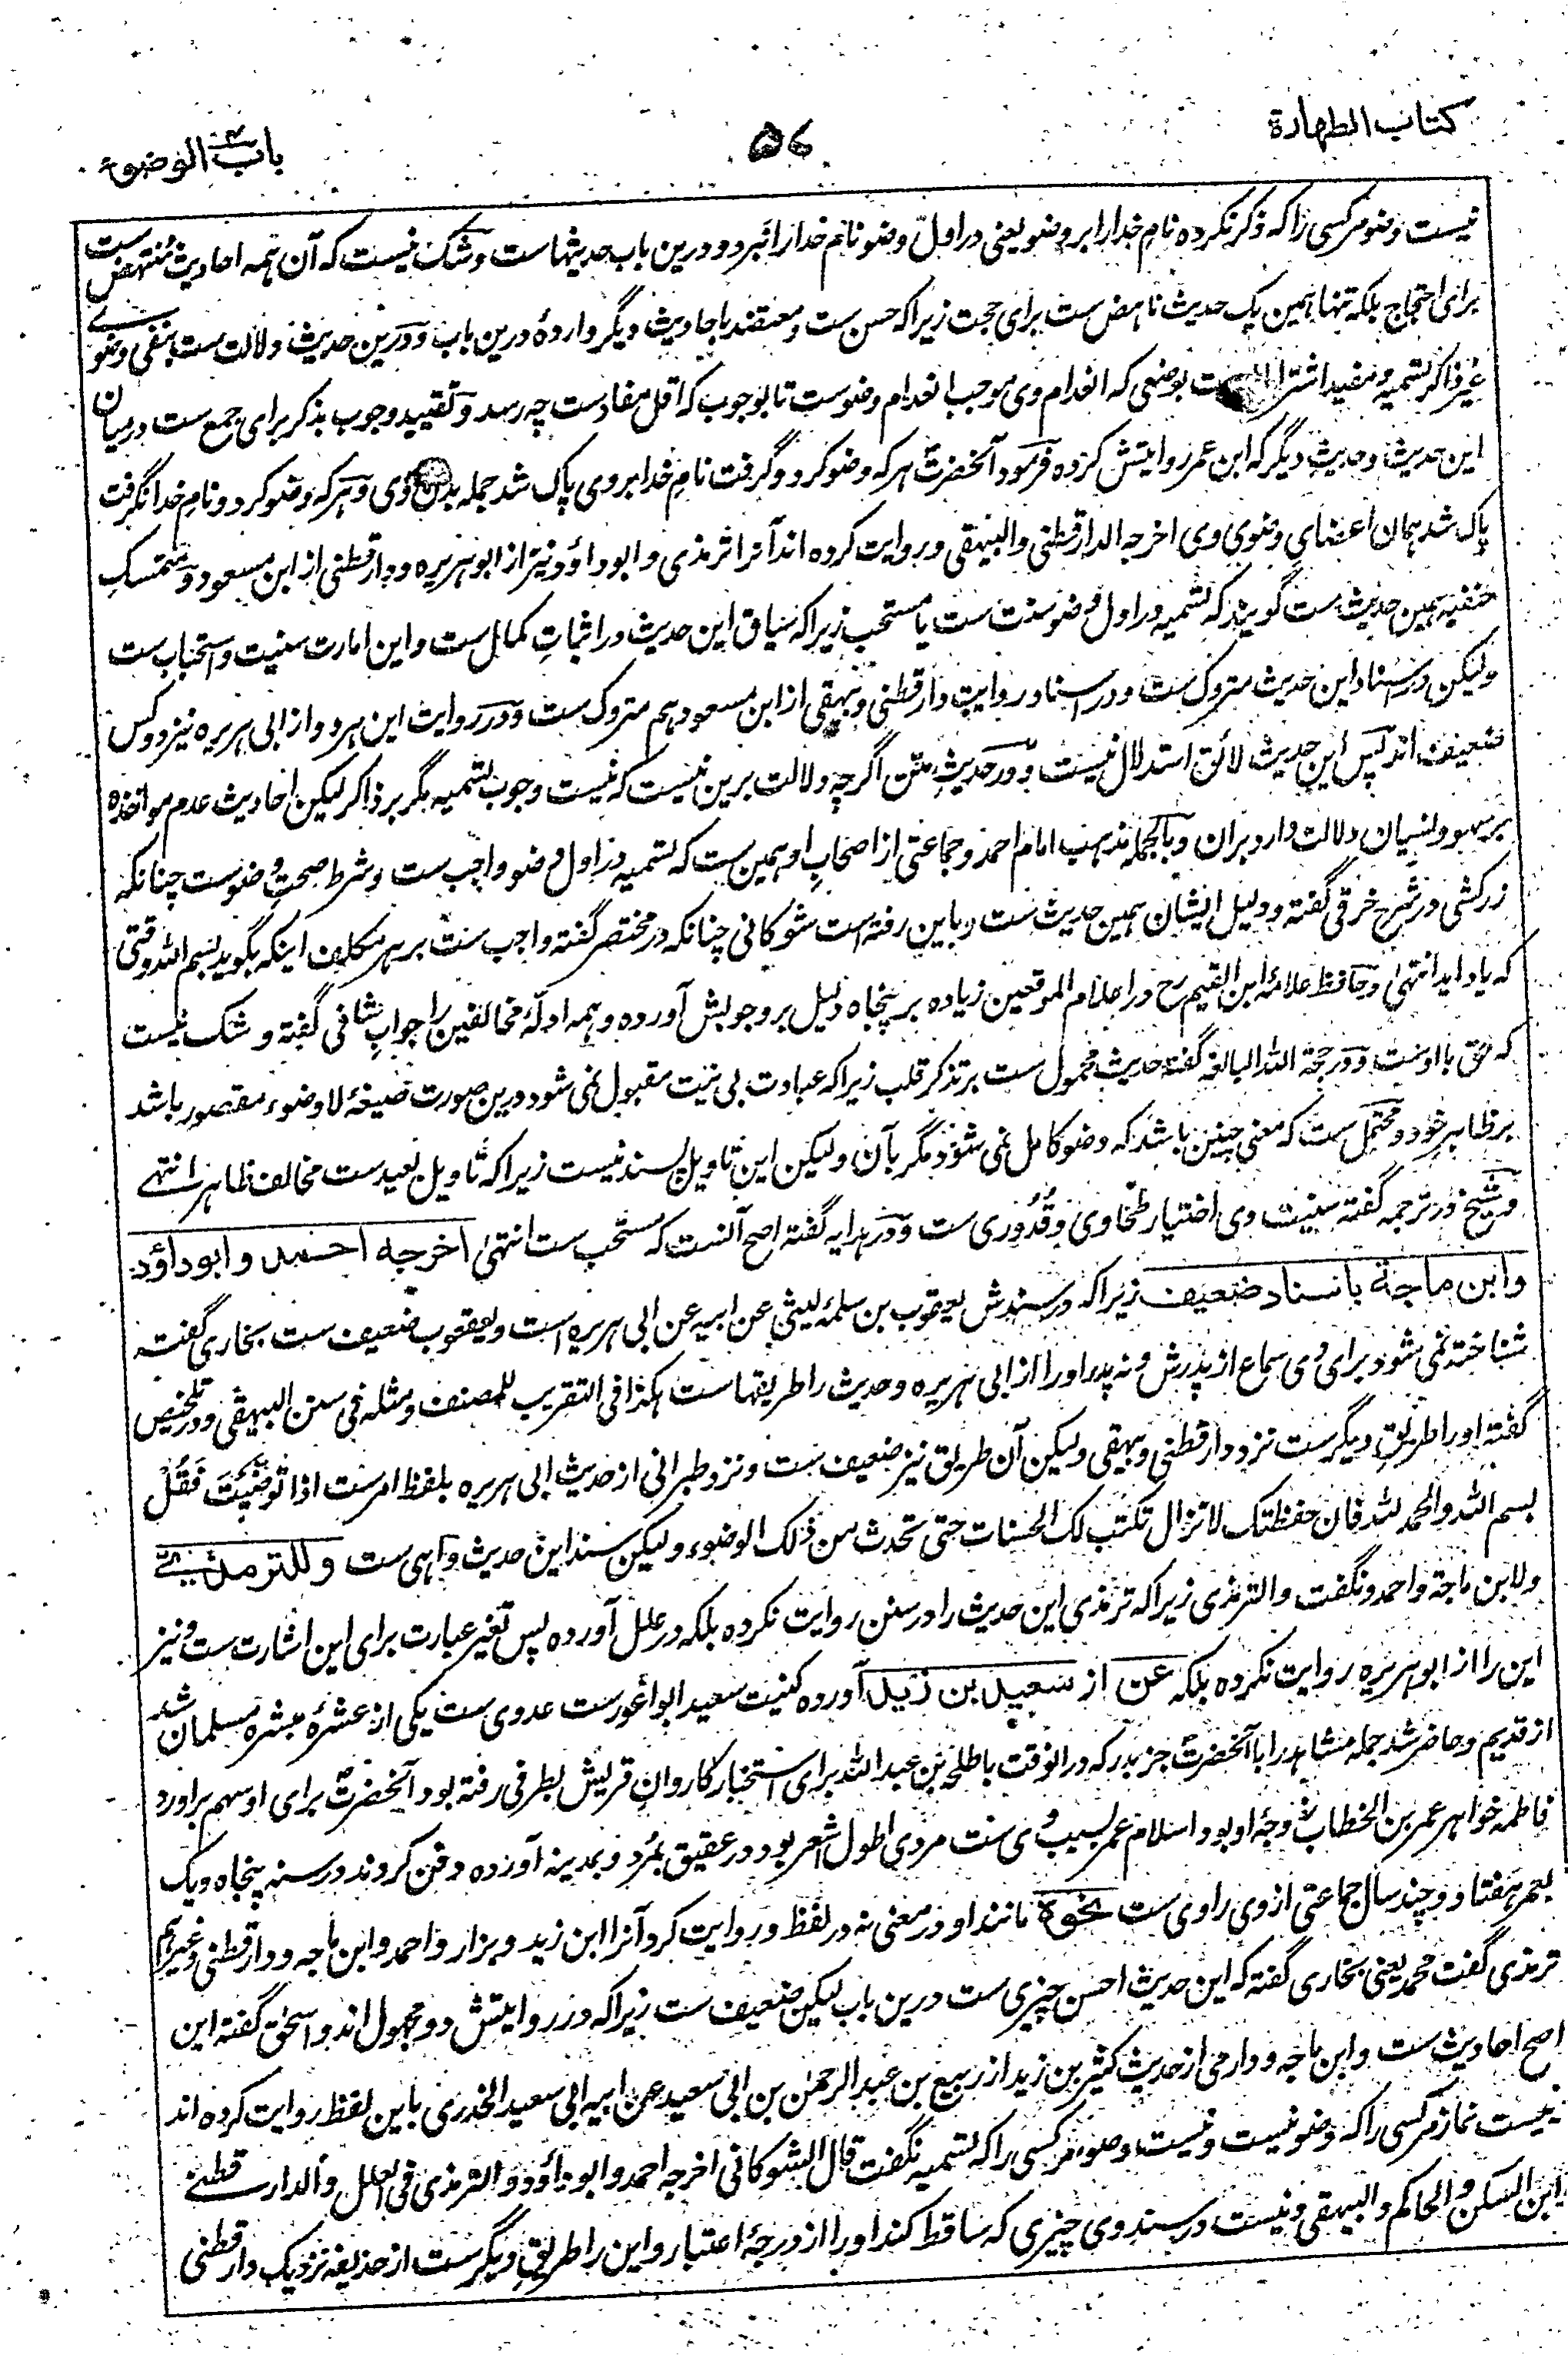 كتاب الطهارة
۵۶
باب الوضوء
نیست وضو مر کسی را که ذکر نکرده نام خدا را بر وضو یعنی در اول وضو نام خدا را نبرد و درین باب حدیثهاست و شک نیست که آن همه احادیث منتهض ست
برای احتجاج بلکه تنها همین یک حدیث ناهض ست برای حجت زیرا که حسن ست و معتضد باحادیث دیگر واردهٔ درین باب و درین حدیث دلالت ست بنفی وضوے
غیر ذاکر تسمیه و مفید بوضعی که انعدام وی موجب انعدام وضوست تا بوجوب که اقل مفادست چه رسد و تقیید وجوب بذکر برای جمع ست درمیان
این حدیث و حدیث دیگر که ابن عمر روایتش کرده فرمود آنحضرتؐ هر که وضو کرد و گرفت نام خدا بر وی پاک شد جمله بدن وی و هر که وضو کرد و نام خدا نگرفت
پاک شد همان اعضای وضوی وی اخرجه الدارقطنی والبیهقی و روایت کرده اند آنرا ترمذی و ابوداؤد نیز از ابوهریره و دارقطنی از ابن مسعود و متمسک
حنفیه همین حدیث ست گویند که تسمیه در اول وضو سنت ست یا مستحب زیرا که سیاق این حدیث در اثبات کمال ست و این امارت سنیت و استحباب ست
ولیکن در اسناد این حدیث متروک ست و در اسناد روایت دارقطنی و بیهقی از ابن مسعود هم متروک ست و در روایت این هر دو از ابی هریره نیز دو کس
ضعیف اند پس این حدیث لائق استدلال نیست و در حدیث متن اگرچه دلالت برین نیست که نیست وجوب تسمیه مگر بر ذاکر لیکن احادیث عدم مواخذه
بر سهو و نسیان دلالت دارد بران و بالجمله مذهب امام احمد و جماعتی از اصحاب او همین ست که تسمیه در اول وضو واجب ست و شرط صحت وضوست چنانکه
زرکشی در شرح خرقی گفته و دلیل ایشان همین حدیث ست و باین رفته است شوکانی چنانکه در مختصر گفته واجب ست بر هر مکلف اینکه بگوید بسم الله وقتی
که یاد آید انتهیٰ و حافظ علامه ابن القیم رح در اعلام الموقعین زیاده بر پنجاه دلیل بر وجوبش آورده و همه ادلهٔ مخالفین را جواب شافی گفته و شک نیست
که حق با اوست و در حجة الله البالغه گفته حدیث محمول ست بر تذکر قلب زیرا که عبادت بی نیت مقبول نمی شود درین صورت صیغهٔ لا وضوء مقصور باشد
بر ظاهر خود و محتمل ست که معنی چنین باشد که وضو کامل نمی شود مگر بآن ولیکن این تاویل پسند نیست زیرا که تاویل بعید ست مخالف ظاهر انتهے
و شیخ در ترجمه گفته سنیت وی اختیار طحاوی و قدوری ست و در هدایه گفته اصح آنست که مستحب ست انتهیٰ اخرجه احمد و ابوداؤد
وابن ماجة باسناد ضعیف زیرا که در سندش یعقوب بن سلمه لیثی عن ابیه عن ابی هریره است و یعقوب ضعیف ست بخاری گفته
شناخته نمی شود برای وی سماع از پدرش و نه پدر او را از ابی هریره و حدیث را طریقهاست هکذا فی التقریب للمصنف و مثله فی سنن البیهقی و در تلخیص
گفته او را طریق دیگر ست نزد دارقطنی و بیهقی ولیکن آن طریق نیز ضعیف ست و نزد طبرانی از حدیث ابی هریره بلفظ امر ست اذا توضئت فقل
بسم الله والحمد لله فان حفظتک لا تزال تکتب لک الحسنات حتی تحدث من ذلک الوضوء ولیکن سند این حدیث واهی ست وللترمذی
ولابن ماجة واحمد و نگفت والترمذی زیرا که ترمذی این حدیث را در سنن روایت نکرده بلکه در علل آورده پس تغیر عبارت برای این اشارت ست و نیز
این را از ابوهریره روایت نکرده بلکه عن از سعید بن زید آورده کنیت سعید ابو اعور ست عدوی ست یکی از عشرهٔ مبشره مسلمان شد
از قدیم و حاضر شد جمله مشاهد را با آنحضرتؐ جز بدر که در انوقت با طلحة بن عبدالله برای استخبار کاروان قریش بطرفی رفته بود آنحضرتؐ برای او سهم بر آورد
فاطمه خواهر عمر بن الخطاب زوجهٔ او بود اسلام عمر بسبب وی ست مردی اطول اشعر بود در عقیق بمرد و بمدینه آورده دفن کردند در سنه پنجاه و یک
بعمر هفتاد و چند سال جماعتی از وی راوی ست نحوه مانند او در معنی نه در لفظ و روایت کرد آنرا ابن زید و بزار و احمد و ابن ماجه و دارقطنی و غیرهم
ترمذی گفت محمد یعنی بخاری گفته که این حدیث احسن چیزی ست درین باب لیکن ضعیف ست زیرا که در روایتش دو مجهول اند و اسحٰق گفته این
اصح احادیث ست و ابن ماجه و دارمی از حدیث کثیر بن زید از ربیع بن عبدالرحمن بن ابی سعید عن ابیه ابی سعید الخدری باین لفظ روایت کرده اند
نیست نماز مر کسی را که وضو نیست و نیست وضوء مر کسی را که تسمیه نگفت قال الشوکانی اخرجه احمد وابوداؤد والترمذی فی العلل والدارقطنے
وابن السکن والحاکم والبیهقی و نیست در سند وی چیزی که ساقط کند او را از درجهٔ اعتبار و این را طریق دیگر ست از حذیفه نزدیک دارقطنی